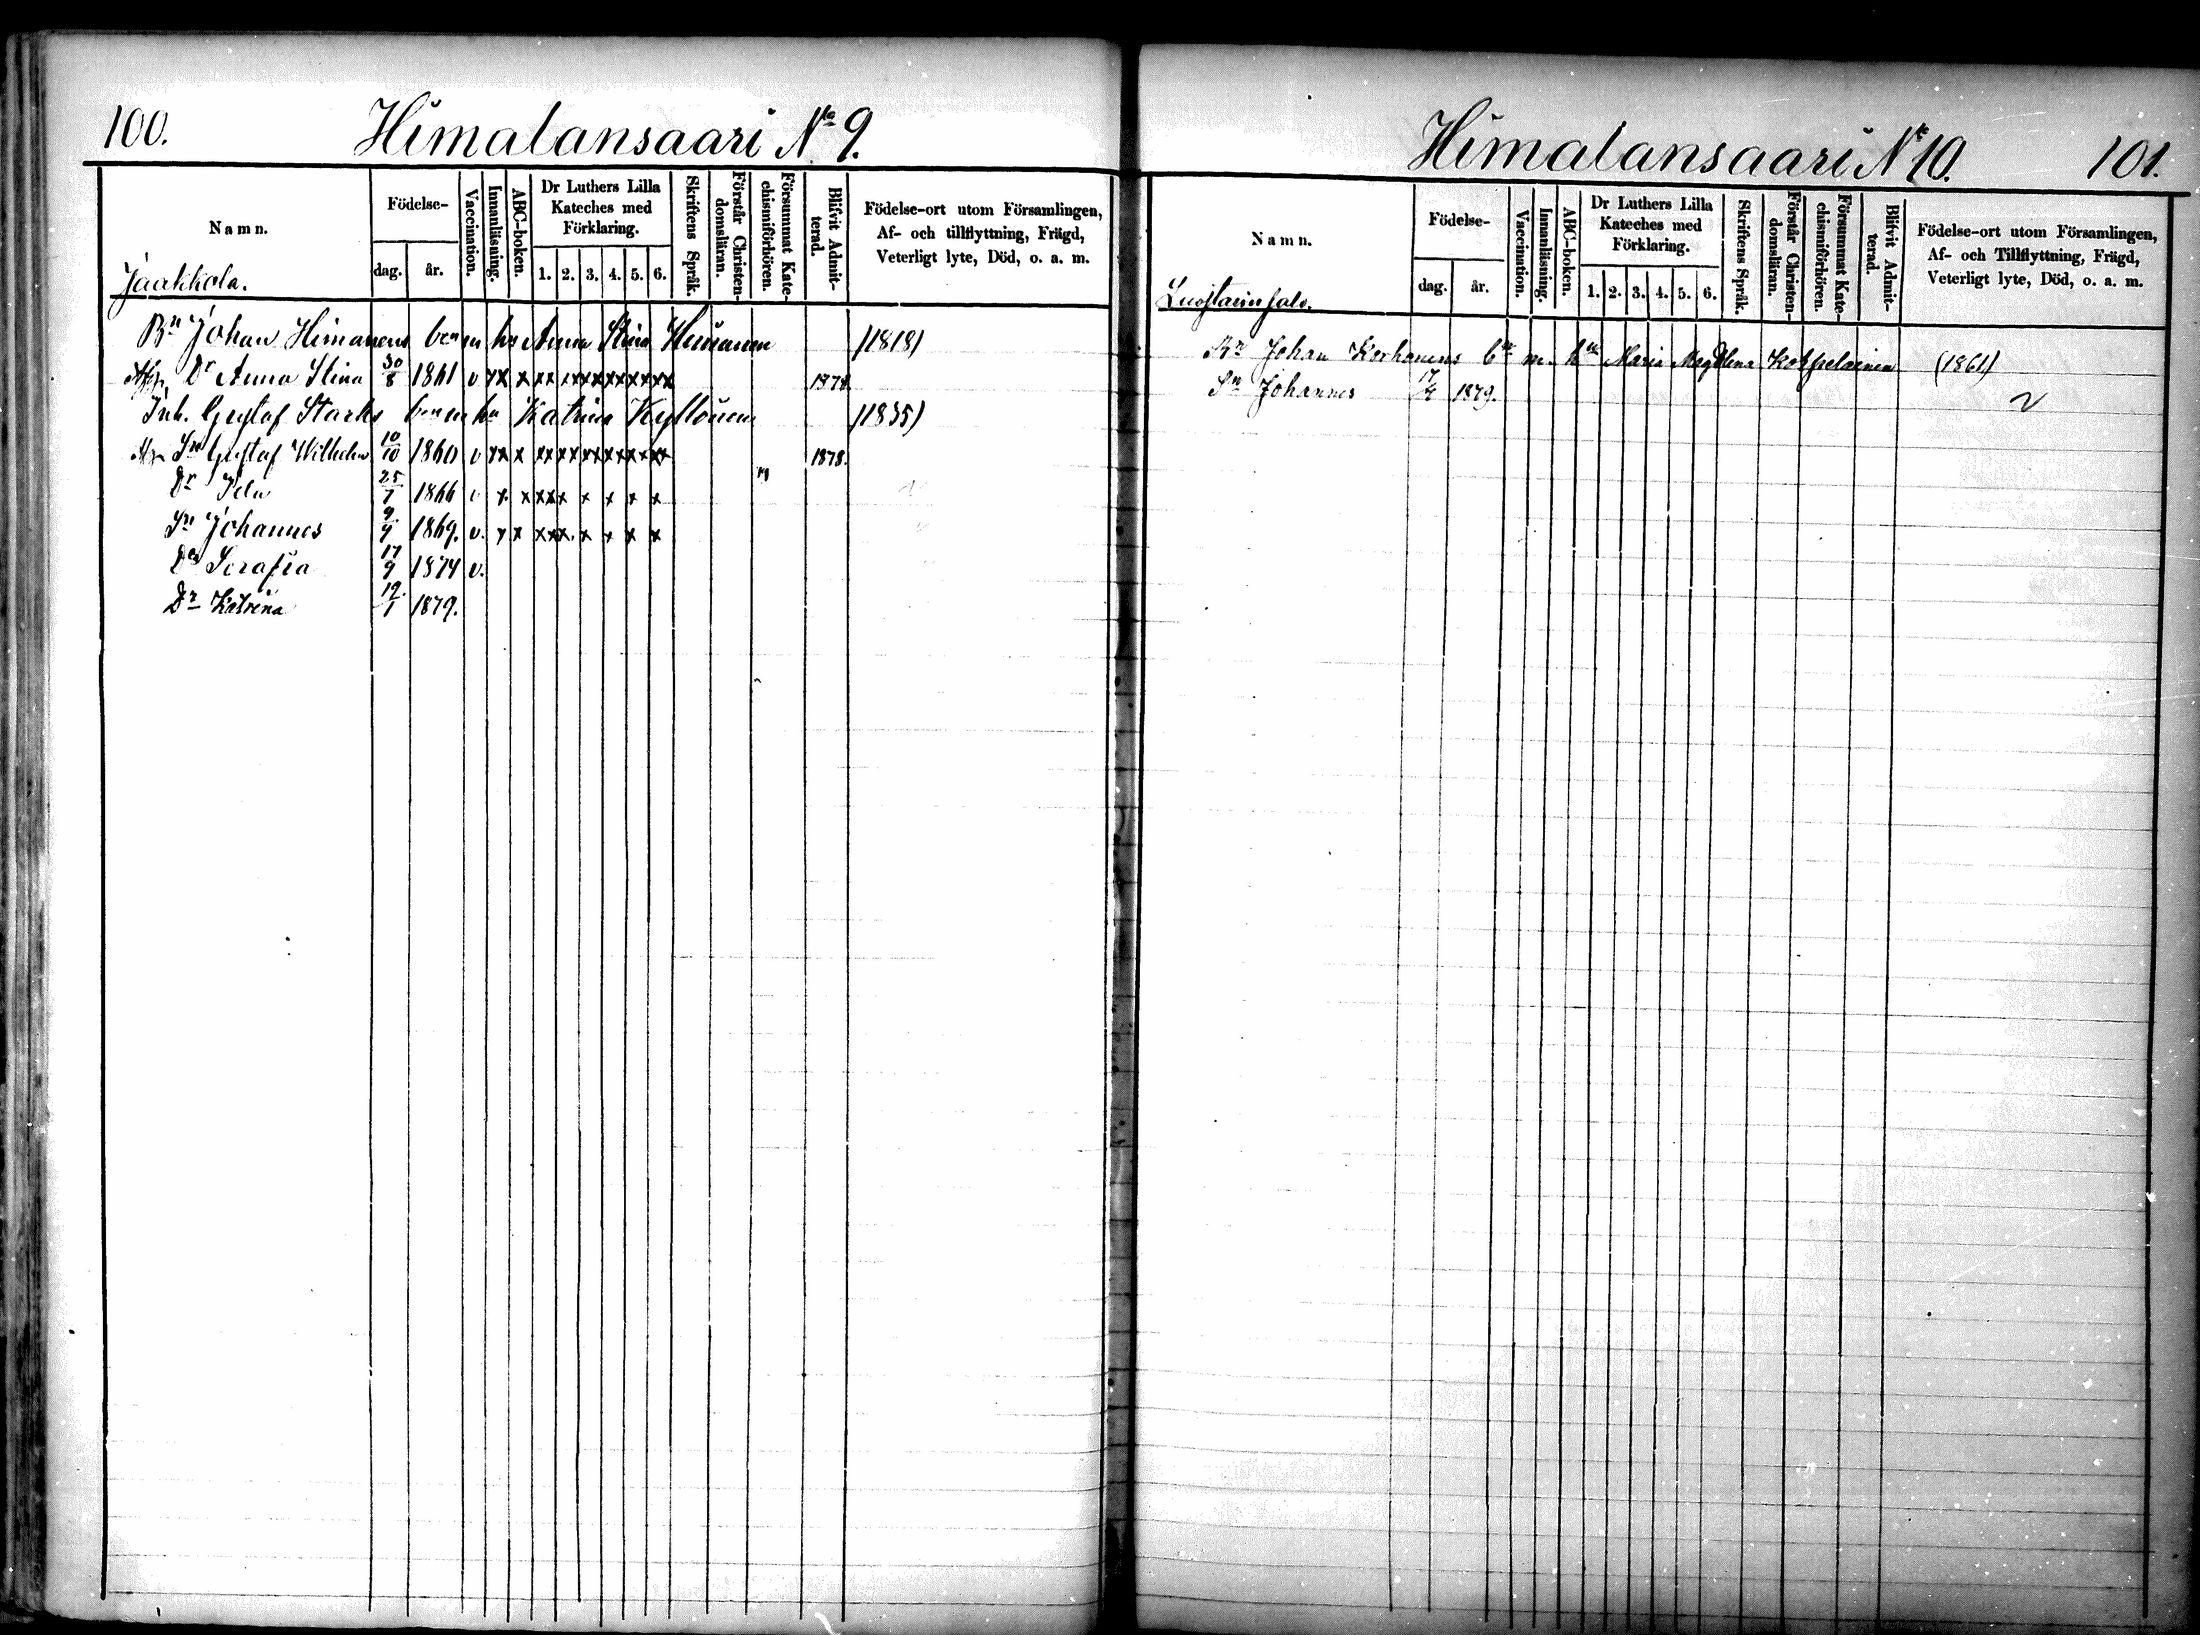 100. Himalansaari No 9.
Namn.
Födelse-
dag. år.
Vaccination.
Innanläsning.
ABC-boken.
Dr Luthers Lilla Kateches med Förklaring.
1. 2. 3. 4. 5. 6.
Skriftens Språk.
Förstår Christendomsläran.
Försummat Katechismiförhören.
Blifvit Admitterad.
Födelse-ort utom Församlingen,
Af- och tillflyttning, Frägd,
Veterligt lyte, Död, o. a. m.
Jaakkola.
Bn Johan Himanens barn m hu Anna Stina Himanen (1818)
Dr Anna Stina 30/8 1861 v xx x xx xx xx xx xx xx 1878
Inh. Gustaf Starks barn m hu Katrina Kyllönen (1835)
Sn Gustaf Wilhelm 10/10 1860 v xx x xx xx xx xx xx xx 1878.
Dr Ida 25/7 1866 v x x xx x x x x x
Sn Johannes 9/4 1869. v. x x xx x. x x x x
Dr Serafia 17/9 1874 v.
Dr Katrina 12/1 1879.
Himalansaari No 10. 101.
Namn.
Födelse-
dag. år.
Vaccination.
Innanläsning.
ABC-boken.
Dr Luthers Lilla Kateches med Förklaring.
1. 2. 3. 4. 5. 6.
Skriftens Språk.
Förstår Christendomsläran.
Försummat Katechismiförhören.
Blifvit Admitterad.
Födelse-ort utom Församlingen,
Af- och Tillflyttning, Frägd,
Veterligt lyte, Död, o. a. m.
Bn Johan Korhonens bn m. hu Maria Magdlena Kokpelainen (1861)
Sn Johannes 17/4 1879.